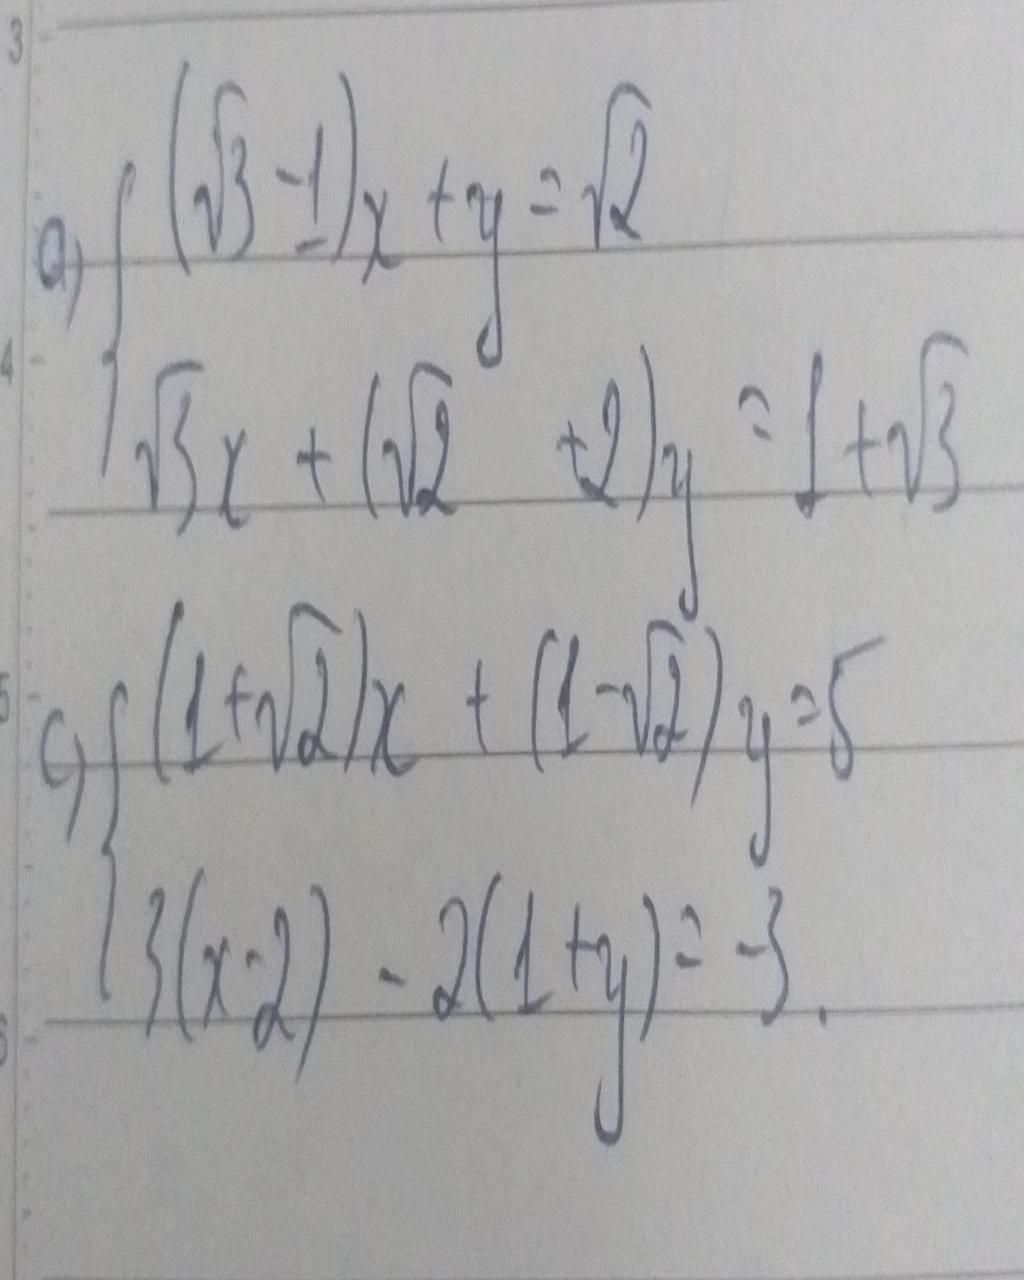 3
a) { (√3 -1)x + y = √2
4
√3x + (√2 +2)y = 1 + √3
5
c) { (1+√2)x + (1-√2)y = 5
3(x-2) - 2(1+y) = -3.
6